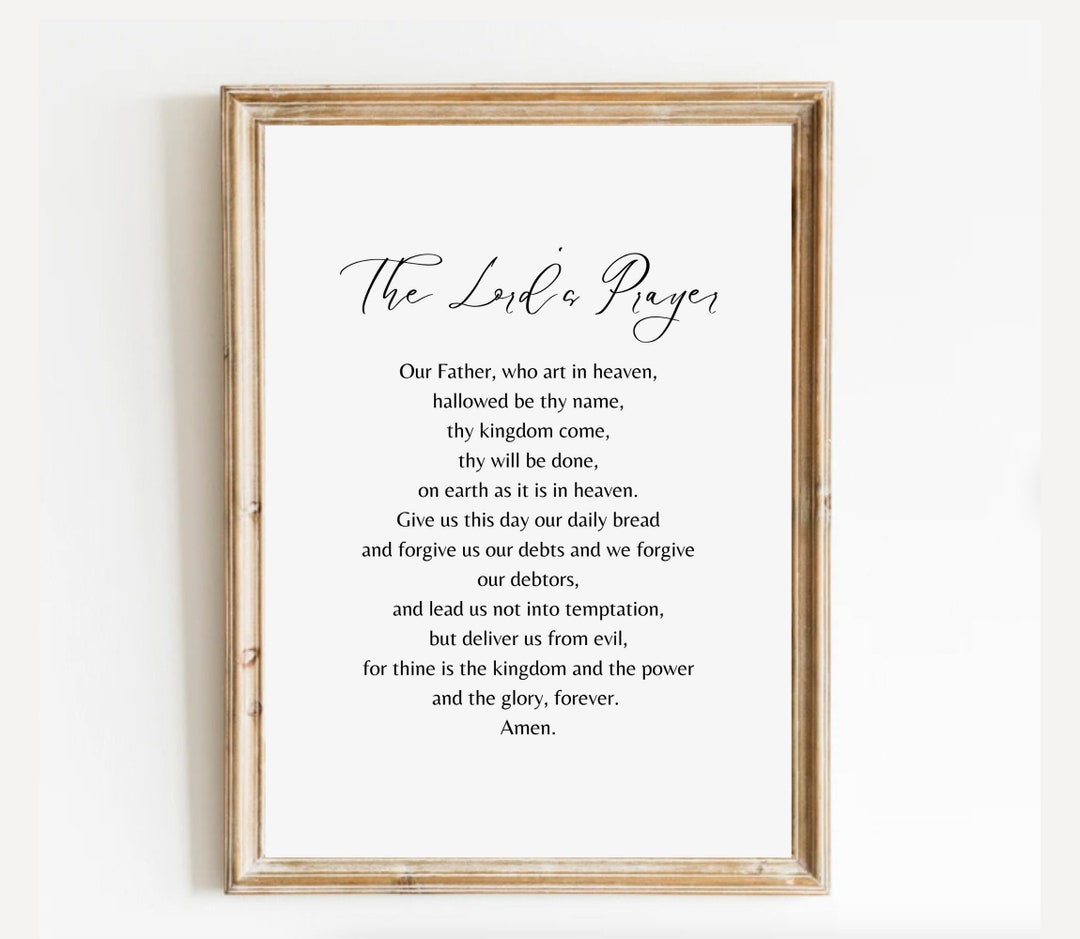 The Lord's Prayer
Our Father, who art in heaven,
hallowed be thy name,
thy kingdom come,
thy will be done,
on earth as it is in heaven.
Give us this day our daily bread
and forgive us our debts and we forgive
our debtors,
and lead us not into temptation,
but deliver us from evil,
for thine is the kingdom and the power
and the glory, forever.
Amen.